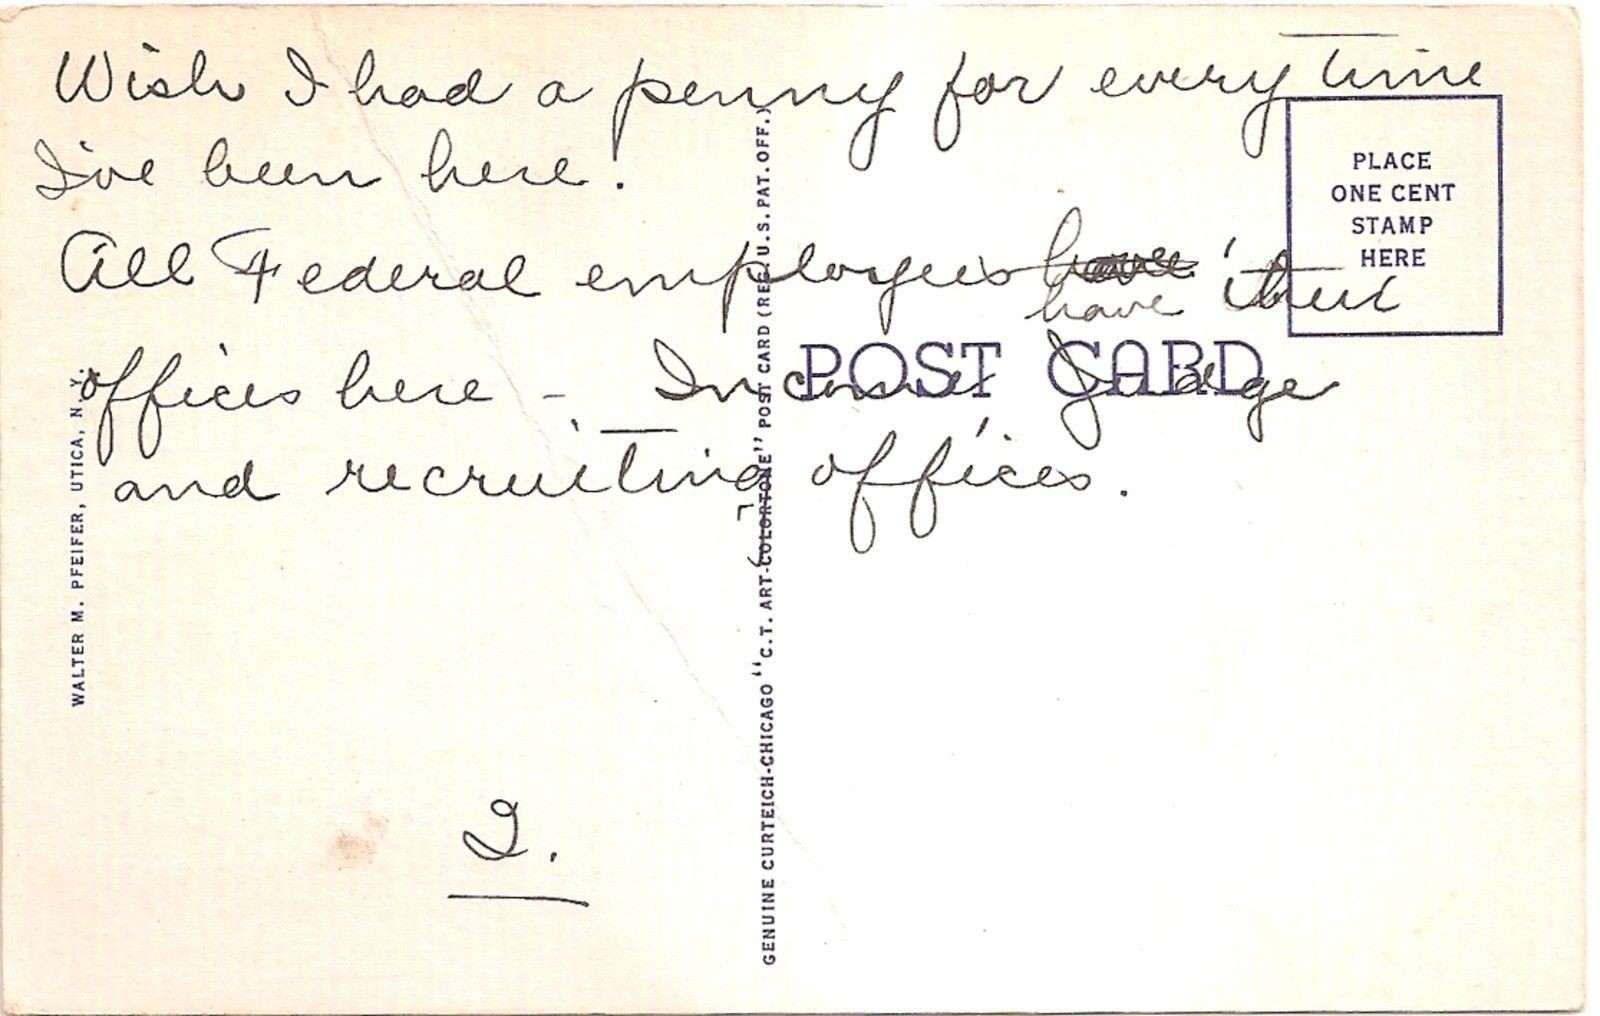 Wish I had a penny for every time
I've been here.
All Federal employees have their
have
offices here - Judge
and recruiting offices.
I.
PLACE
ONE CENT
STAMP
HERE
POST CARD
WALTER M. PFEIFER, UTICA, N. Y.
GENUINE CURTEICH-CHICAGO "C.T. ART-COLORTONE" POST CARD (REG. U.S. PAT. OFF.)